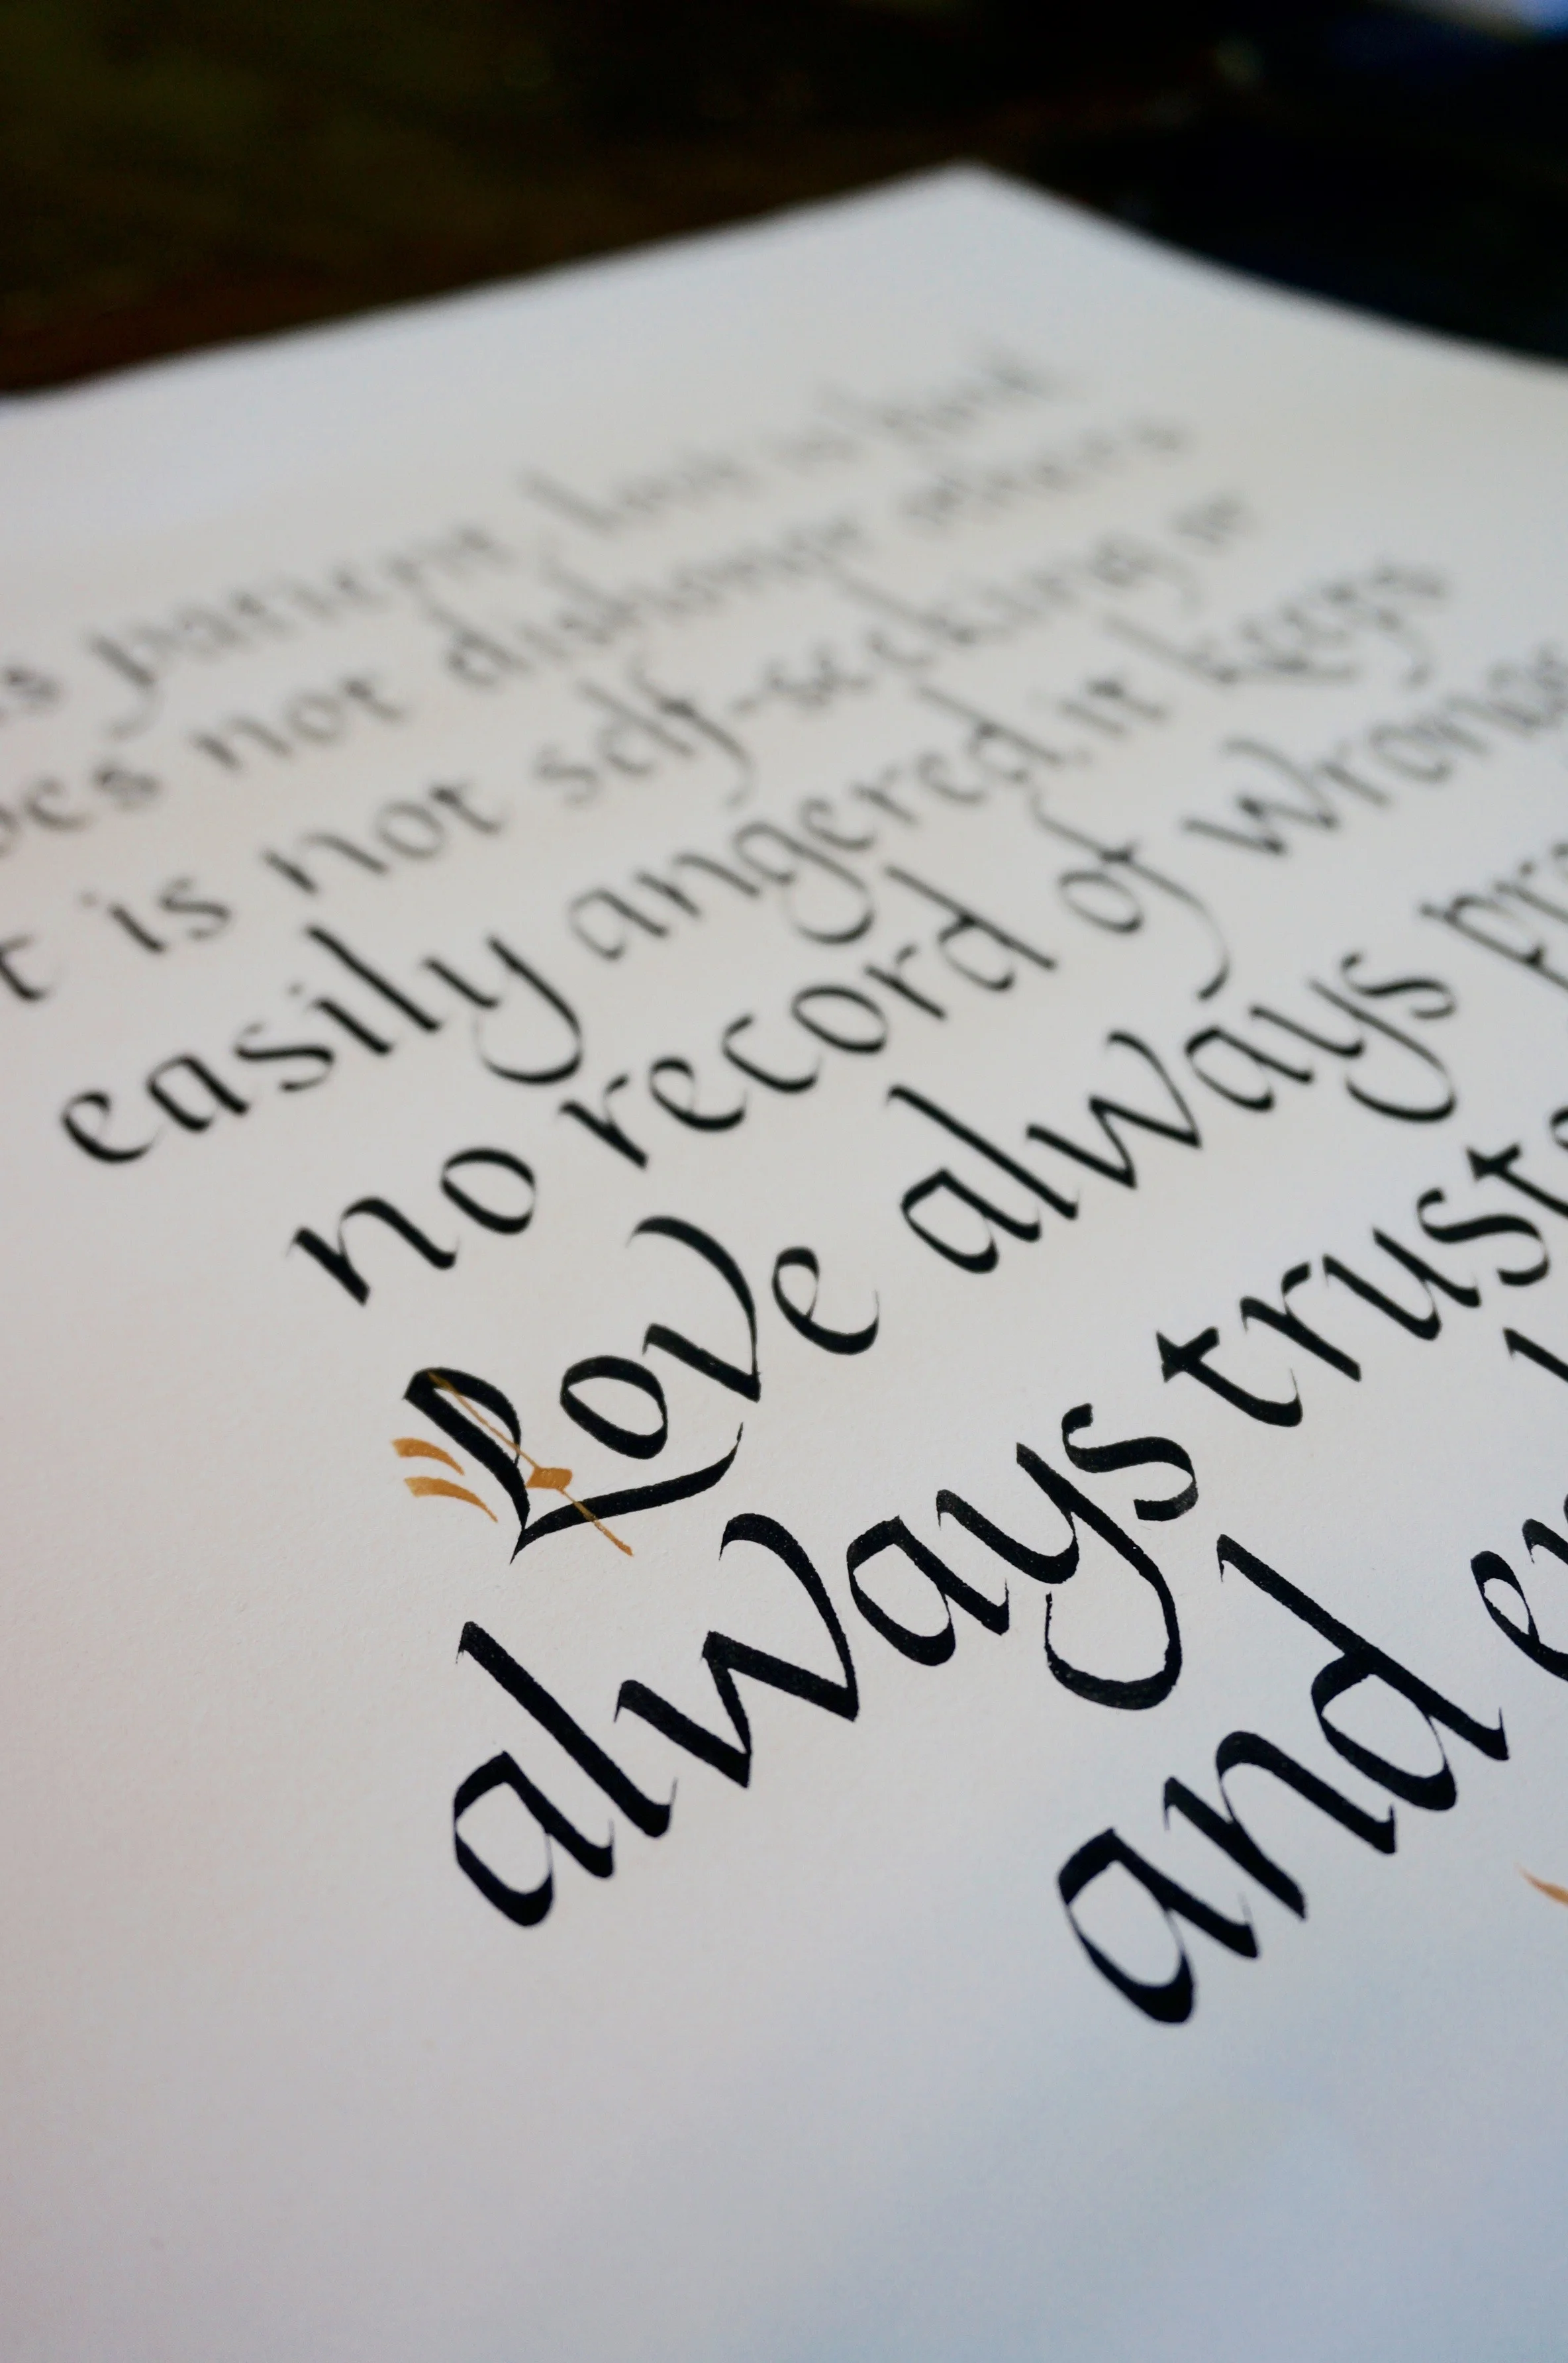 s patient, love is kind
oes not dishonor others
t is not self-seeking or
easily angered, it keeps
no record of wrongs
Love always pro
always trusts
and en